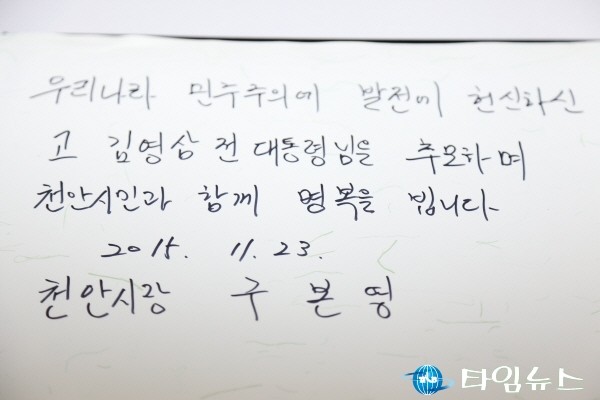 우리나라 민주주의에 발전에 헌신하신
고 김영삼 전 대통령님을 추모하며
천안시민과 함께 명복을 빕니다.
2015. 11. 23.
천안시장 구본영
타임뉴스